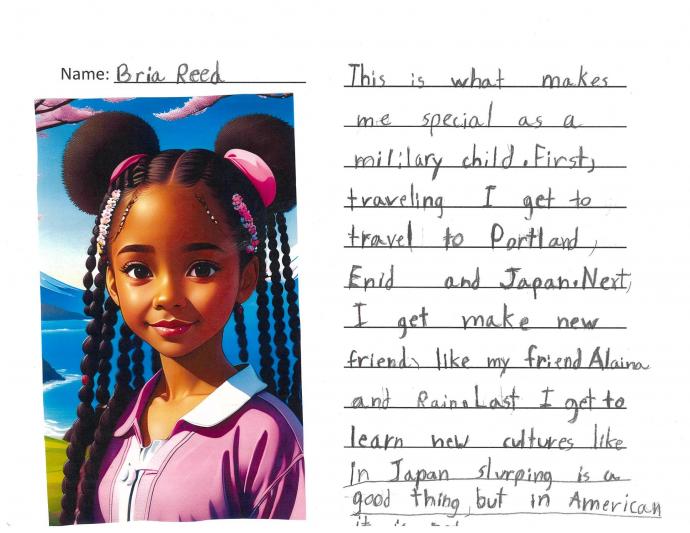 Name: Bria Reed
This is what makes
me special as a
mililary child. First,
traveling I get to
travel to Portland,
Enid and Japan. Next,
I get make new
friend, like my friend Alaina
and Rain. Last I get to
learn new cultures like
in Japan slurping is a
good thing, but in American
it is